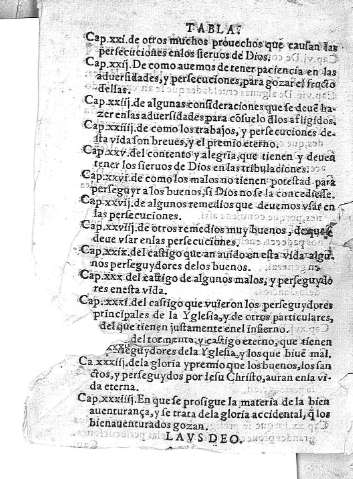 TABLA.
Cap.xxi.de otros muchos prouechos que causan las
persecuciones enlos sieruos de Dios.
Cap.xxij.De como auemos de tener paciencia en las
aduersidades, y persecuciones, para gozar el fructo
dellas.
Cap.xxiij.de algunas consideraciones que se deuē ha
zer enlas aduersidades para cōsuelo dlos afligidos.
Cap.xxiiij.de como los trabajos, y persecuciones de
sta vida son breues, y el premio eterno.
Cap.xxv.del contento y alegria, que tienen y deuen
tener los sieruos de Dios en las tribulaciones.
Cap.xxvj.de como los malos no tienen potestad para
perseguyr a los buenos, si Dios no se la concediesse.
Cap.xxvij.de algunos remedios que deuemos vsar en
las persecuciones.
Cap.xxviij.de otros remedios muy buenos, de que se
deue vsar enlas persecuciones.
Cap.xxix.del castigo que an auido en esta vida algu
nos perseguydores delos buenos.
Cap.xxx del castigo de algunos malos, y perseguydo
res en esta vida.
Cap.xxxi.del castigo que vuieron los perseguydores
principales de la Yglesia, y de otros particulares,
del que tienen justamente en el infierno.
del tormento, y castigo eterno, que tienen
seguydores de la Yglesia, y los que biuē mal.
Ca.xxxiij.de la gloria y premio que los buenos, los san
ctos, y perseguydos por Iesu Christo, auran en la vi
da eterna.
Cap.xxxiiij.En que se prosigue la materia de la bien
auenturança, y se trata de la gloria accidental, q̄ los
bienauenturados gozan.
LAVS DEO.